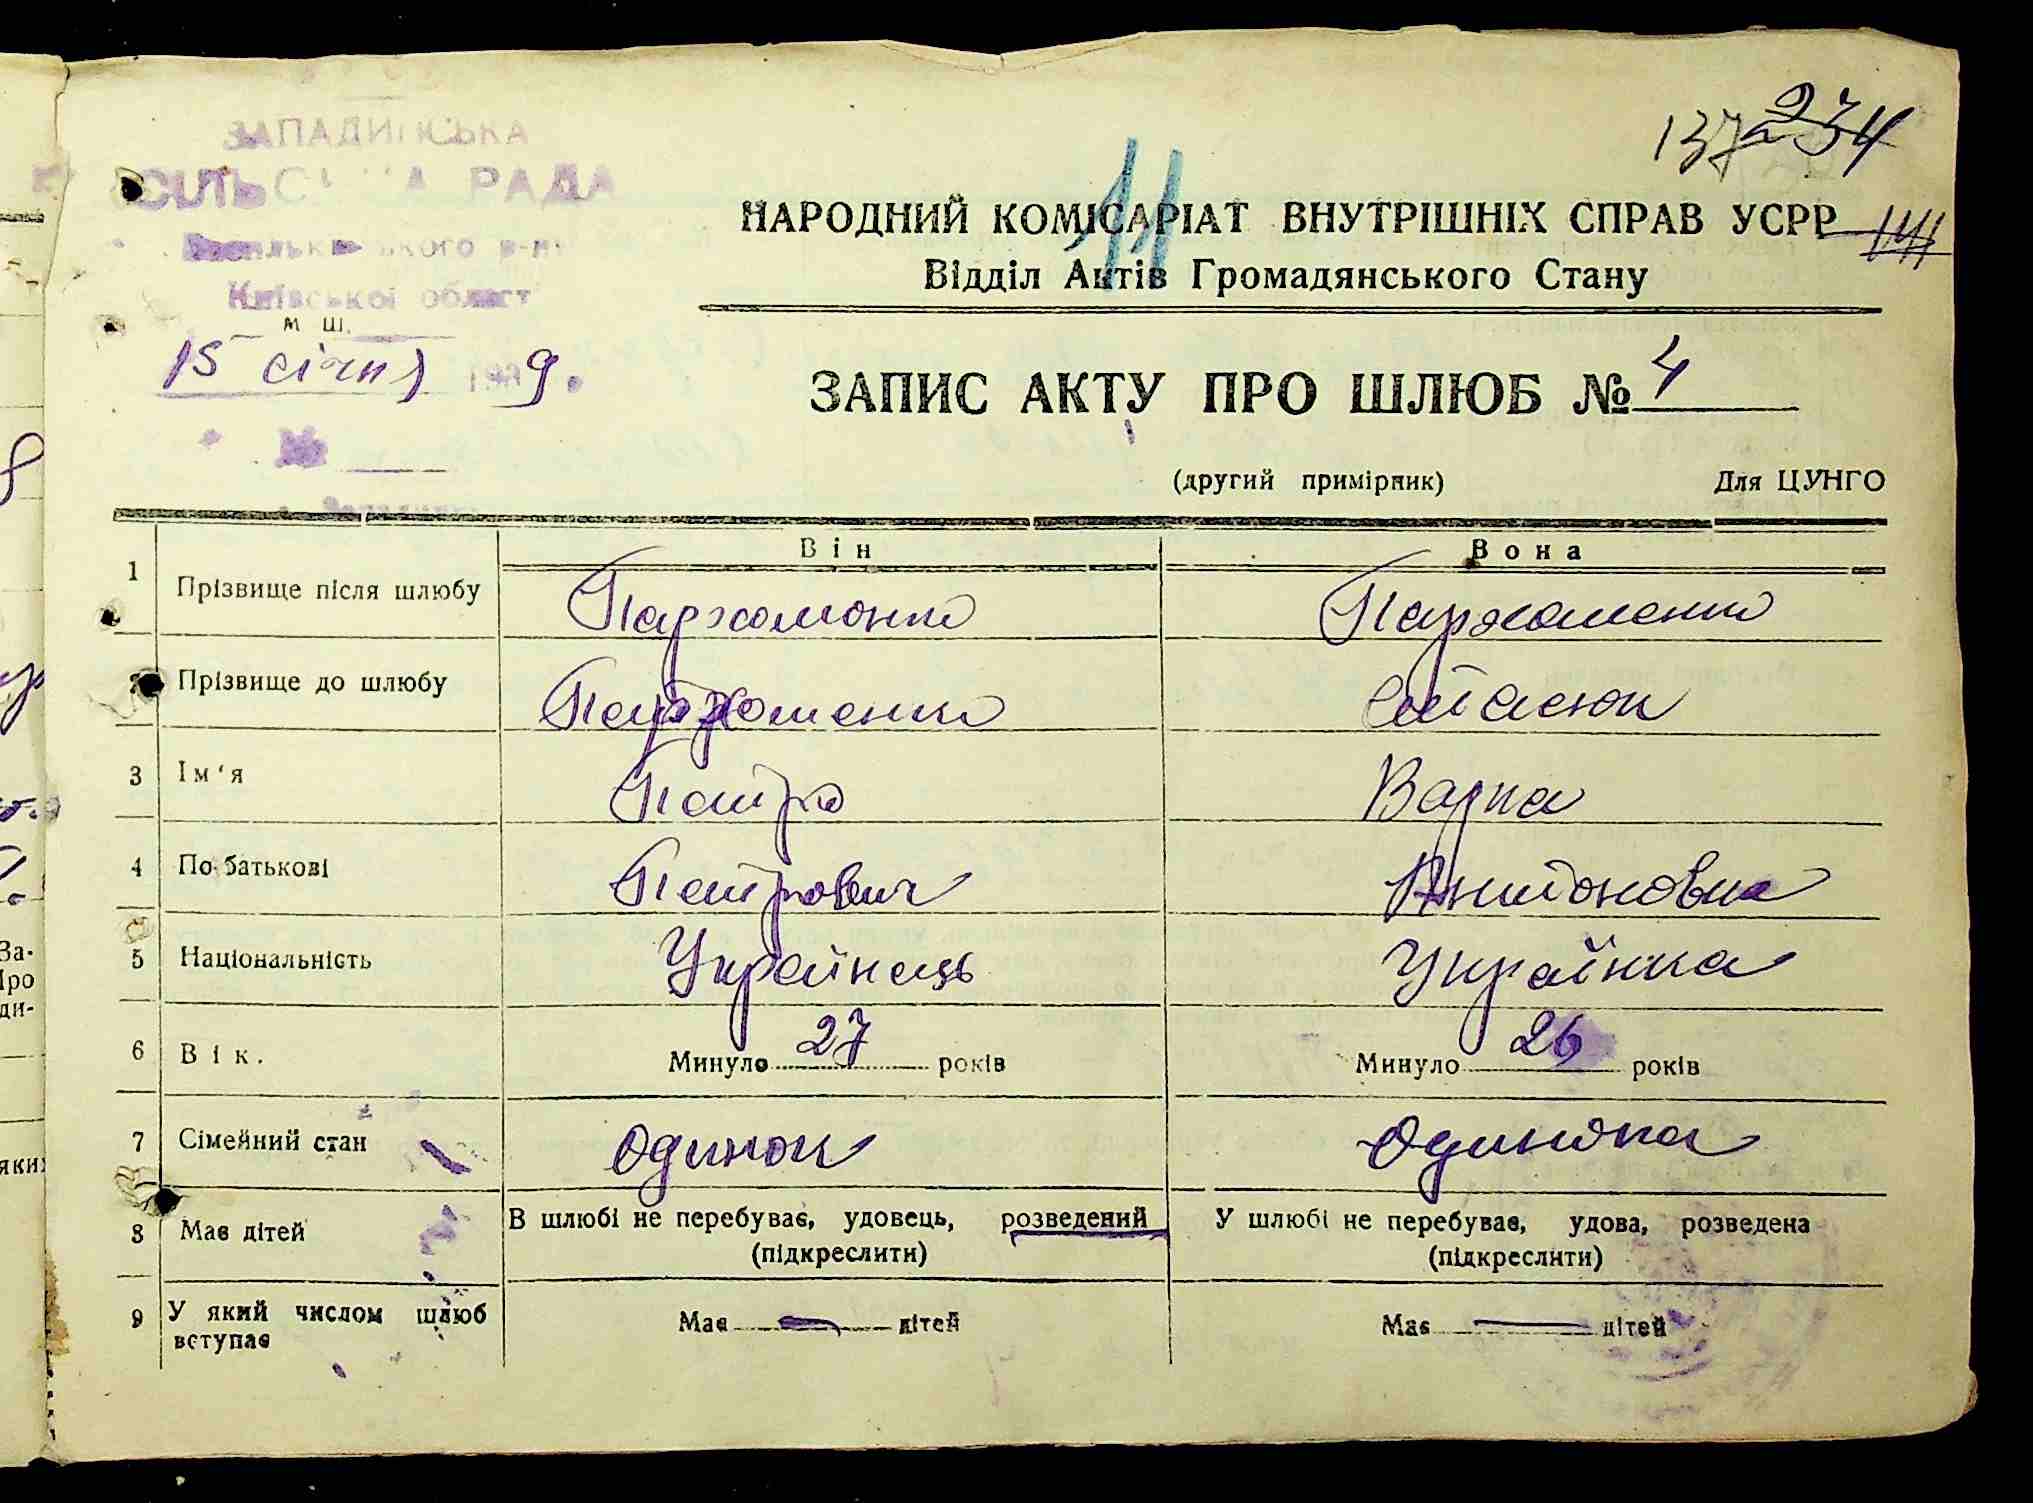 ЗАПАДИНСЬКА
СІЛЬСЬКА РАДА
Васильківського р-ну
Київської област
м ш.
15 січня 1939.
137 234
11
НАРОДНИЙ КОМІСАРІАТ ВНУТРІШНІХ СПРАВ УСРР 141
Відділ Актів Громадянського Стану
ЗАПИС АКТУ ПРО ШЛЮБ № 4
(другий примірник) Для ЦУНГО
Він Вона
1 Прізвище після шлюбу Пархоменко Пархоменко
2 Прізвище до шлюбу Пархоменко Стасюк
3 Ім'я Петро Варка
4 По батькові Петрович Антоновна
5 Національність Українець Українка
6 Вік. Минуло 27 років Минуло 26 років
7 Сімейний стан одинок одинока
8 Має дітей В шлюбі не перебуває, удовець, розведений У шлюбі не перебуває, удова, розведена
(підкреслити) (підкреслити)
9 У який числом шлюб Має — дітей Має — дітей
вступає
За-
Про
ди-
яких